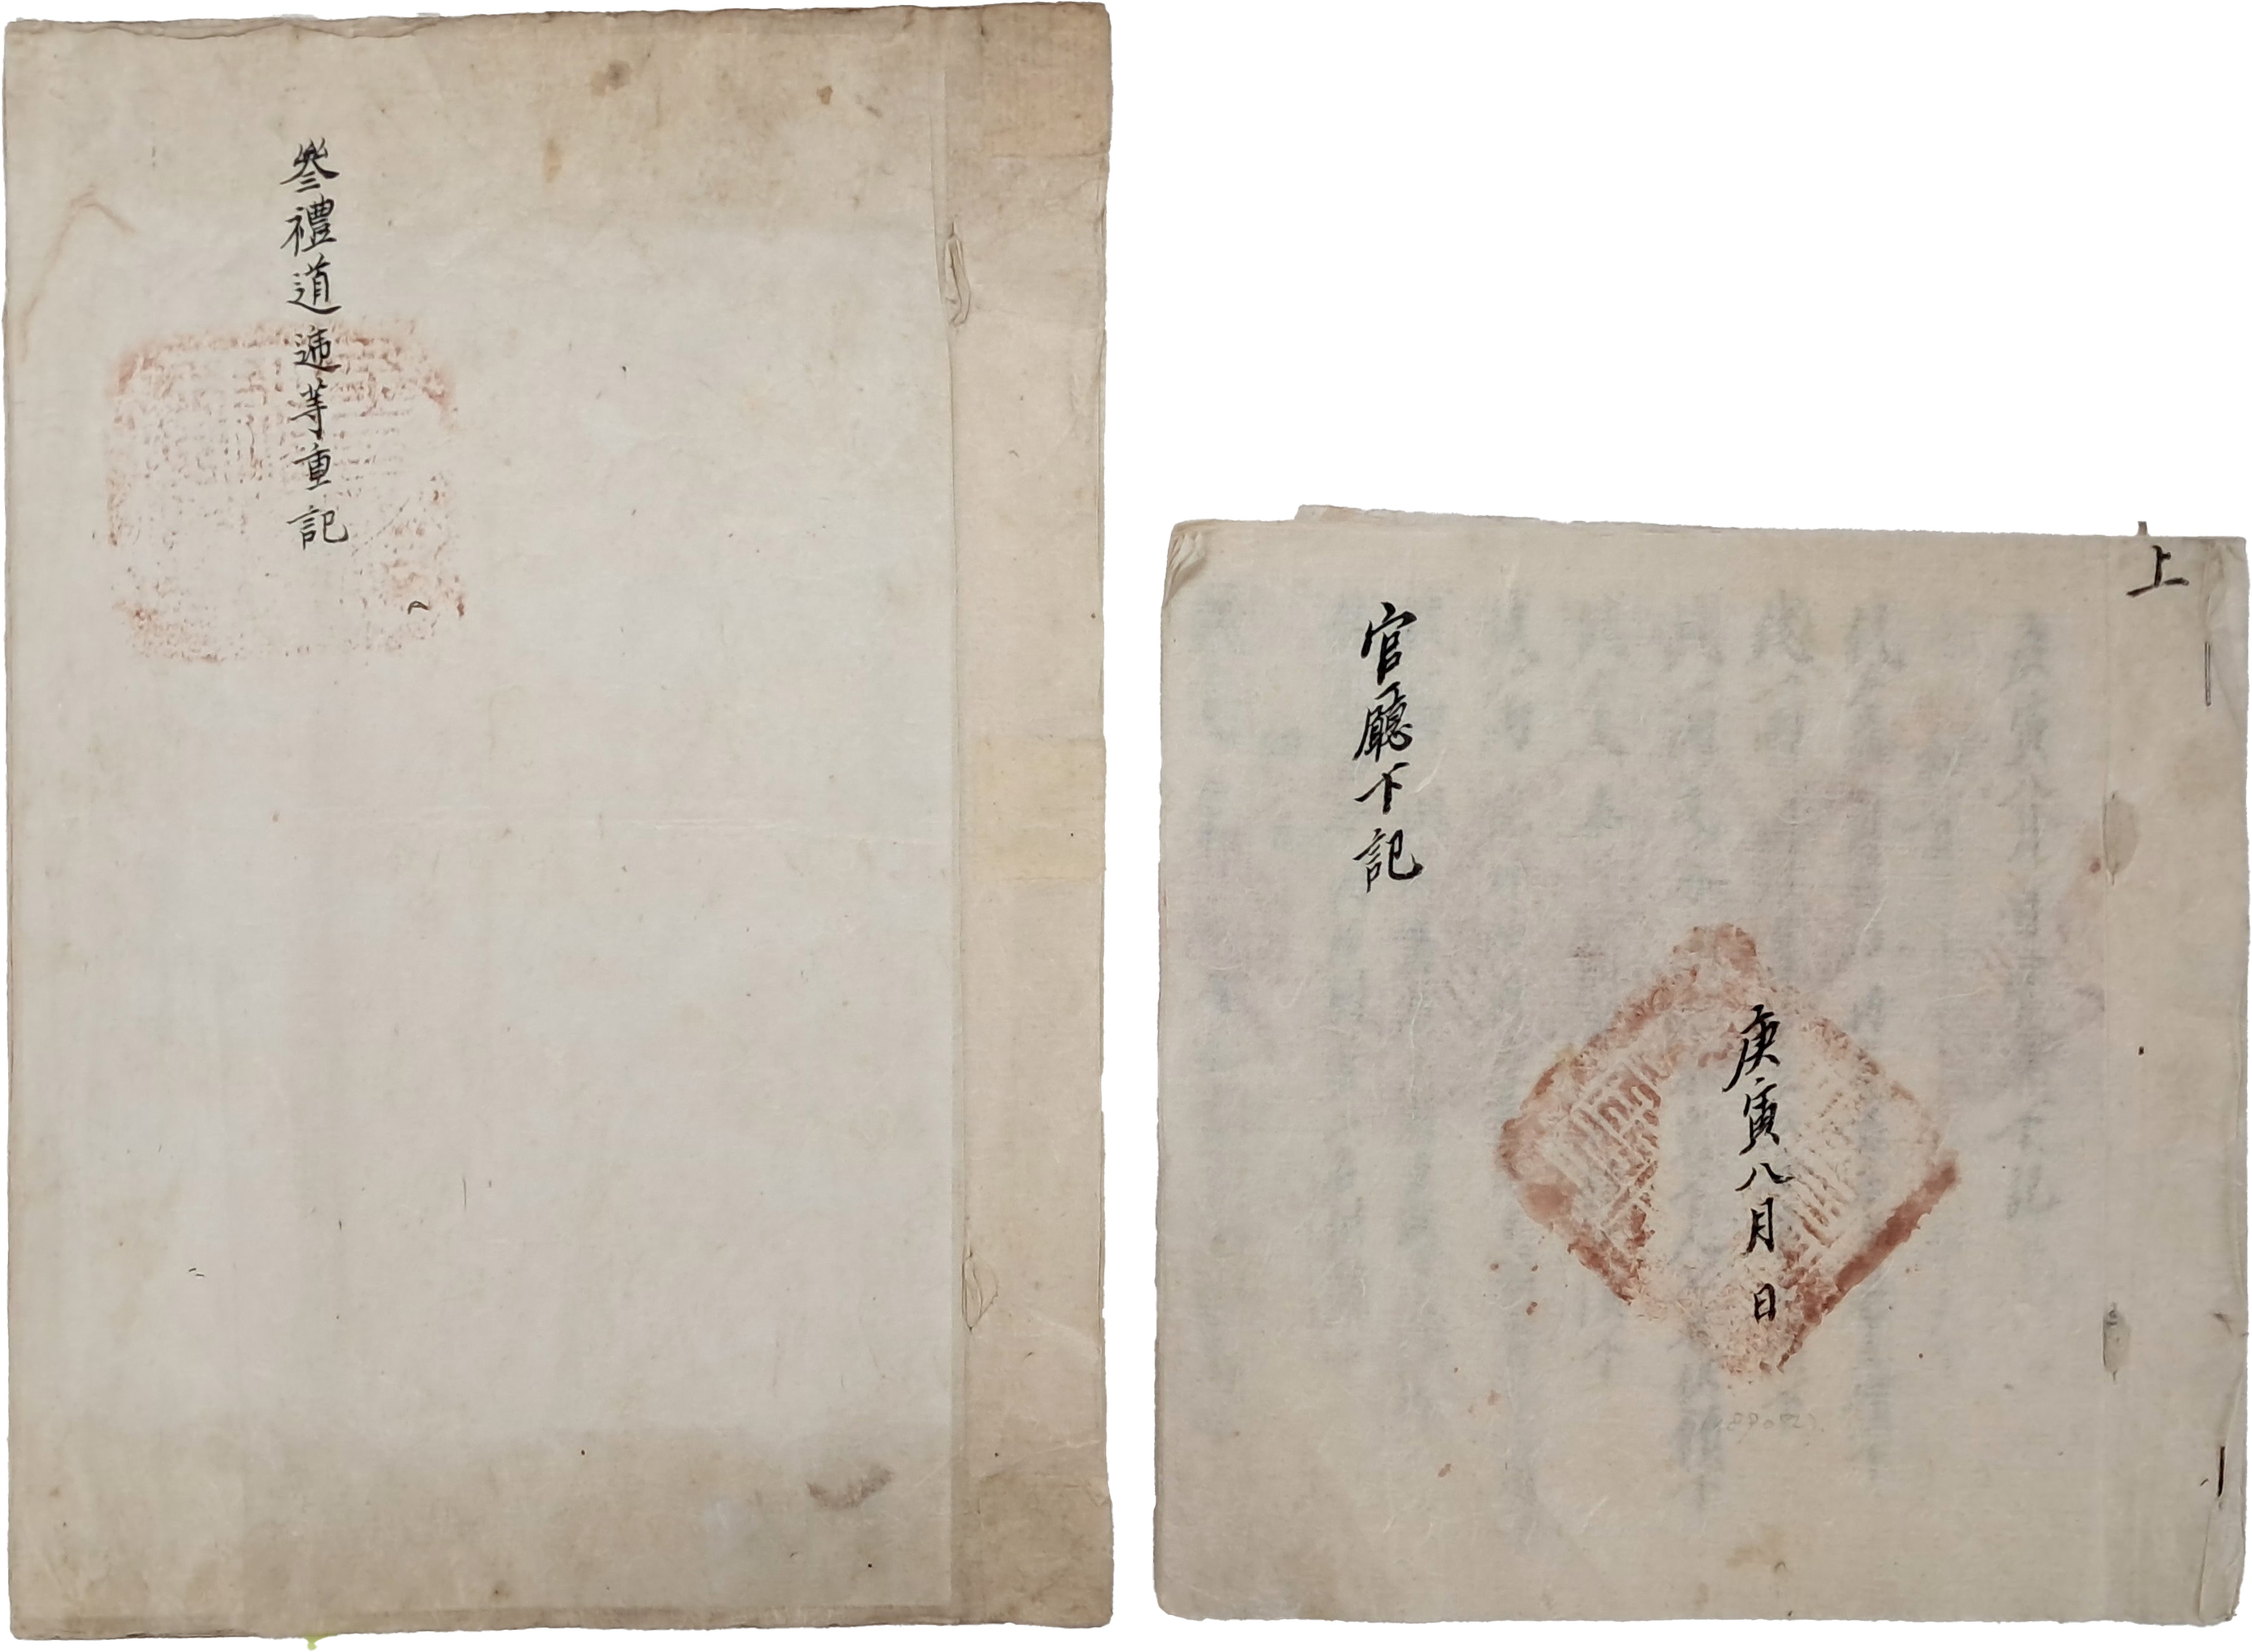 叅禮道遞等重記
上
官廳下記
庚寅八月 日